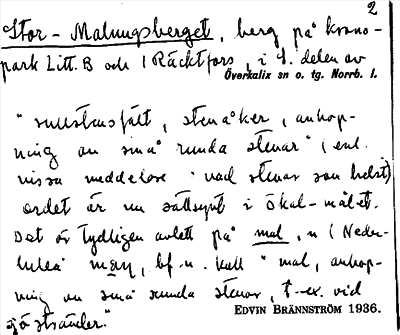 2
Stor-Malungsberget, berg på krono-
park Litt. B och i Räcktfors, i S. delen av
Överkalix sn o. tg. Norrb. l.
"rullstensfält, stenåker, anhop-
ning av små runda stenar" (enl.
vissa meddelare "vad stenar som helst)
ordet är nu sällsynt i Ökal-målet.
Det är tydligen avlett på mal, n (Neder-
luleå may, bf. n. kall "mal, anhop-
ning av små runda stenar, t-ex. vid
sjöstränder."
EDVIN BRÄNNSTRÖM 1936.